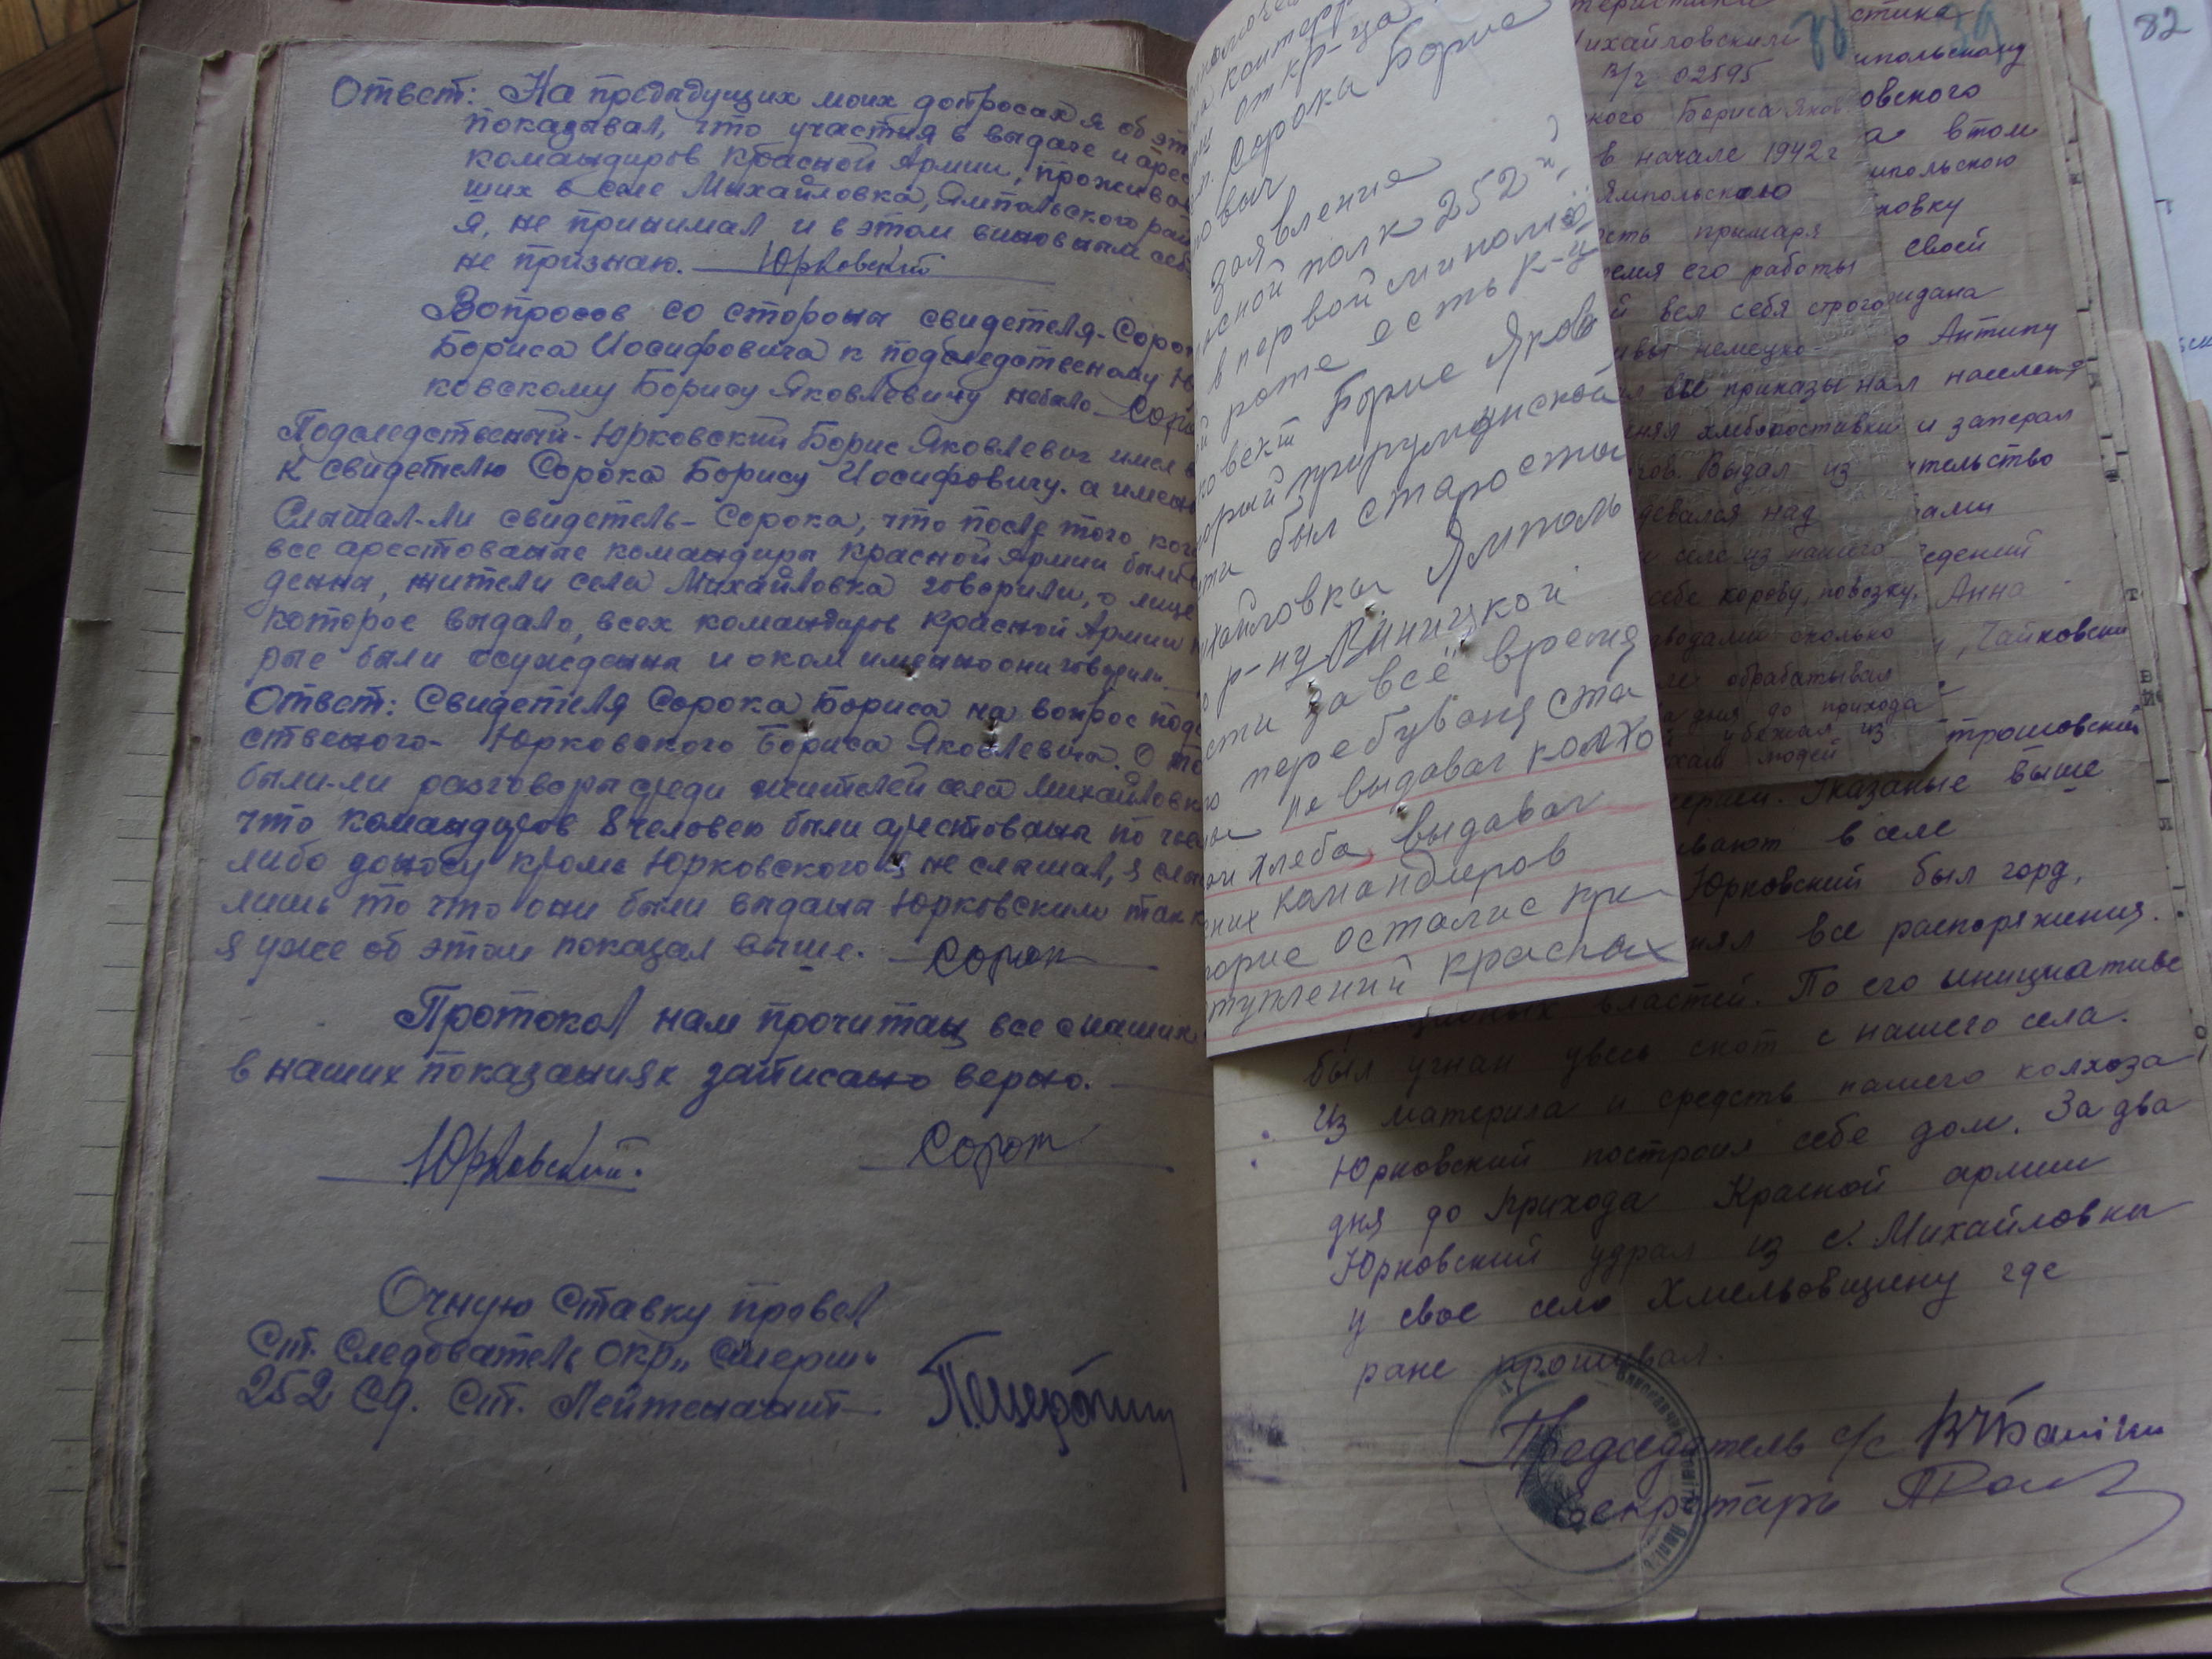 Ответ: На предыдущих моих допросах я об эт
показывал, что участия в выдаче и арес
командиров Красной Армии, прожива
ших в селе Михайловка, Ямпольского рай
я, не принимал и в этом виновным себ
не признаю. Юрковский
Вопросов со стороны свидетеля-Сорок
Бориса Иосифовича к подследственому Ю
ковскому Борису Яковлевичу небыло Соро
Подследственный-Юрковский Борис Яковлевич имел в
к свидетелю Сорока Борису Иосифовичу. а имен
Слышал-ли свидетель-Сорока, что после того ког
все арестованые командиры красной Армии были
дены, жители села Михайловка говорили, о лице
которое выдало, всех командиров красной Армии
рые были осуждены и о ком именно они говорили
Ответ: Свидетеля Сорока Бориса на вопрос подс
ственого- Юрковского Бориса Яковлевича. О то
были-ли разговоры среди жителей села Михайловк
что командиров 8 человек были арестованы по чьем
либо доносу кроме Юрковского я не слышал, я слы
лишь то что они были выданы Юрковским так к
я уже об этом показал выше. Сорок
Протокол нам прочитан все с наших
в наших показаниях записано верно.
Юрковский. Сорок
Очную Ставку провел
Ст. Следователь ОКР „Смерш"
252 СД. Ст. Лейтенант
контрр
от кр-ца
Сорока Борис
вич
заявление
ской полк 252й
в первой миномё
й роте есть к-ц
ковский Борис Яков
орый при румынской
сти был старосты
хайловки Ямполь
о р-ну Виницкой
сти за всё время
о перебуваня ста
ы не выдавал колхо
хлеба, выдавал
ских командиров
орые осталис при
ступлений красных
82
теристика
Михайловский
в/ч 02595
кого Бориса Яков
в начале 1942 г
Ямпольского
ость примаря
ремя его работы
й вел себя строго
л все приказы
нял хлебопоставки
гов. Выдал из
девался над
и селе из нашего
себе корову, повозку,
около
обрабатывал
дня до прихода
убежал из
людей
стика
мпольскому
овского
а в том
мпольскою
ловку
своей
ждана
о Антипу
нал населен
и запирал
тельство
ами
едений
Анна
, Чайковски
трошовский
армии. Указаные выше
ивают в селе
Юрковский был горд,
нял все распоряжения.
ционных властей. По его инициативе
был угнан увесь скот с нашего села.
Из материла и средств нашего колхоза
Юрковский построил себе дом. За два
дня до прихода Красной армии
Юрковский удрал из с. Михайловки
у свое село Хмельовщину где
ране проживал.
Председатель с/с
Секретарь